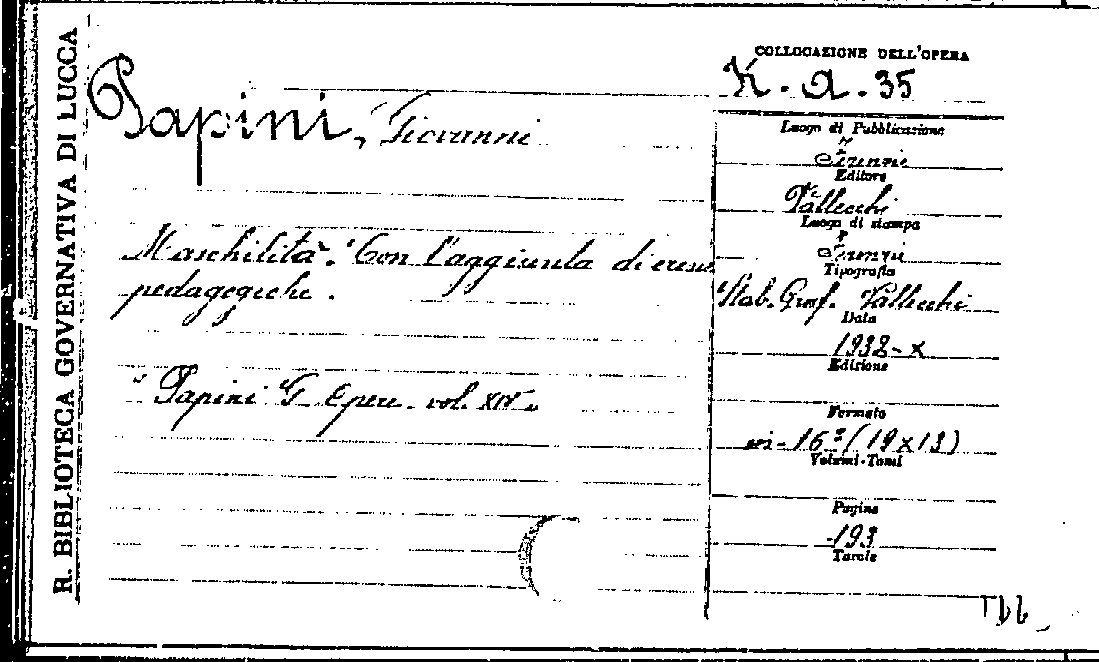 R. BIBLIOTECA GOVERNATIVA DI LUCCA
COLLOCAZIONE DELL'OPERA
K. a. 35
Papini, Giovanni
Luogo di Pubblicazione
Firenze
Editore
Vallecchi
Luogo di stampa
Firenze
Tipografia
Maschilità. Con l'aggiunta di eresie
pedagogiche.
Stab. Graf. Vallecchi
Data
1932-X
Edizione
"Papini G. Opere. vol. XIV"
Formato
in-16º (19x13)
Volumi-Tomi
Pagine
193
Tavole